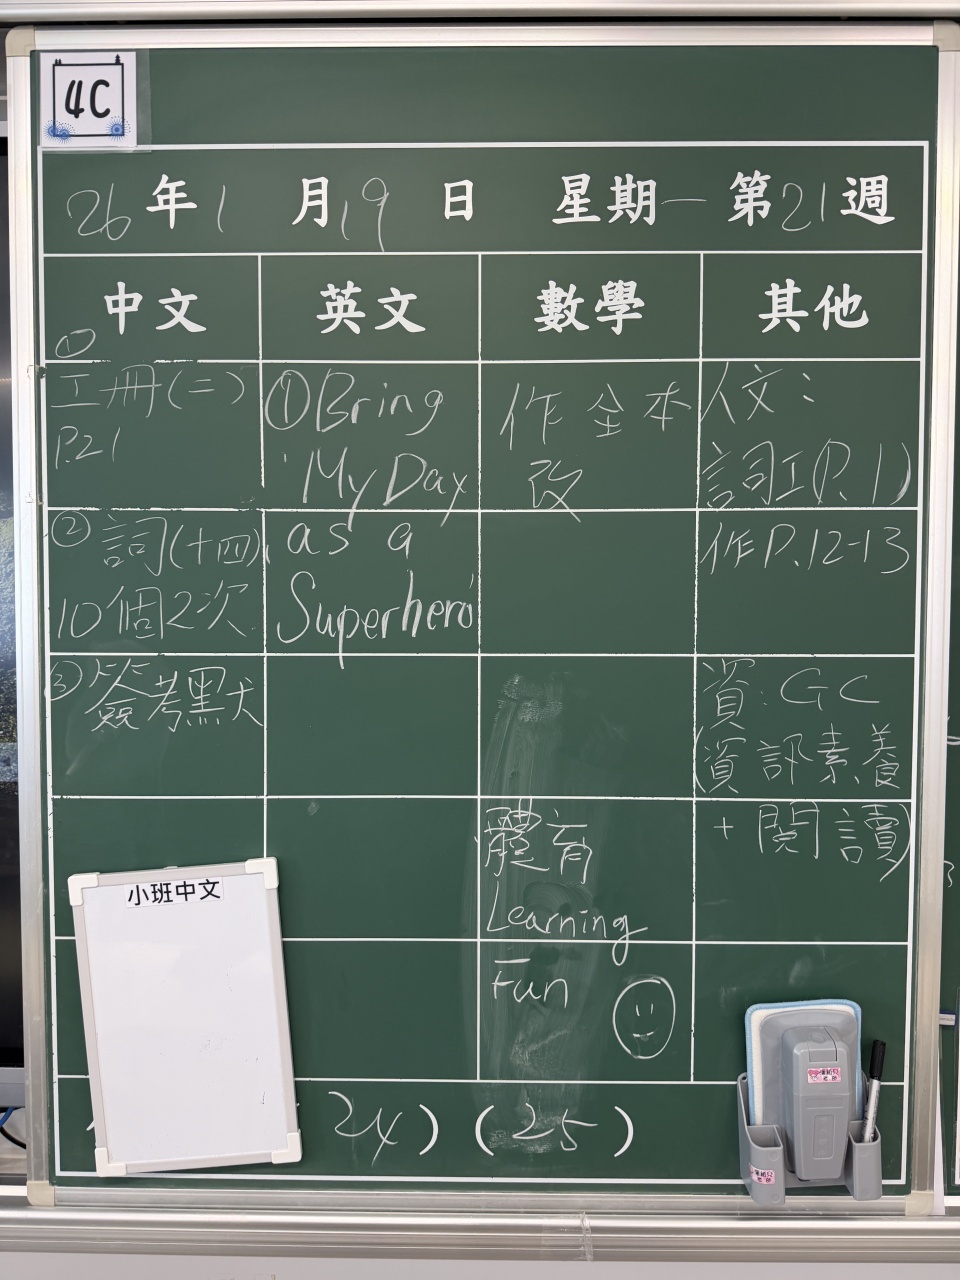 4C
26年1月19日 星期一 第21週
中文 英文 數學 其他
①
工冊(二)
P.21
② 詞(十四)
10個2次
③ 簽考默
①Bring
My Day
as a
Superhero
作全本
改
體育
Learning
Fun
人文:
詞工(P.1)
作P.12-13
資:GC
(資訊素養
+閱讀)
小班中文
24) (25)